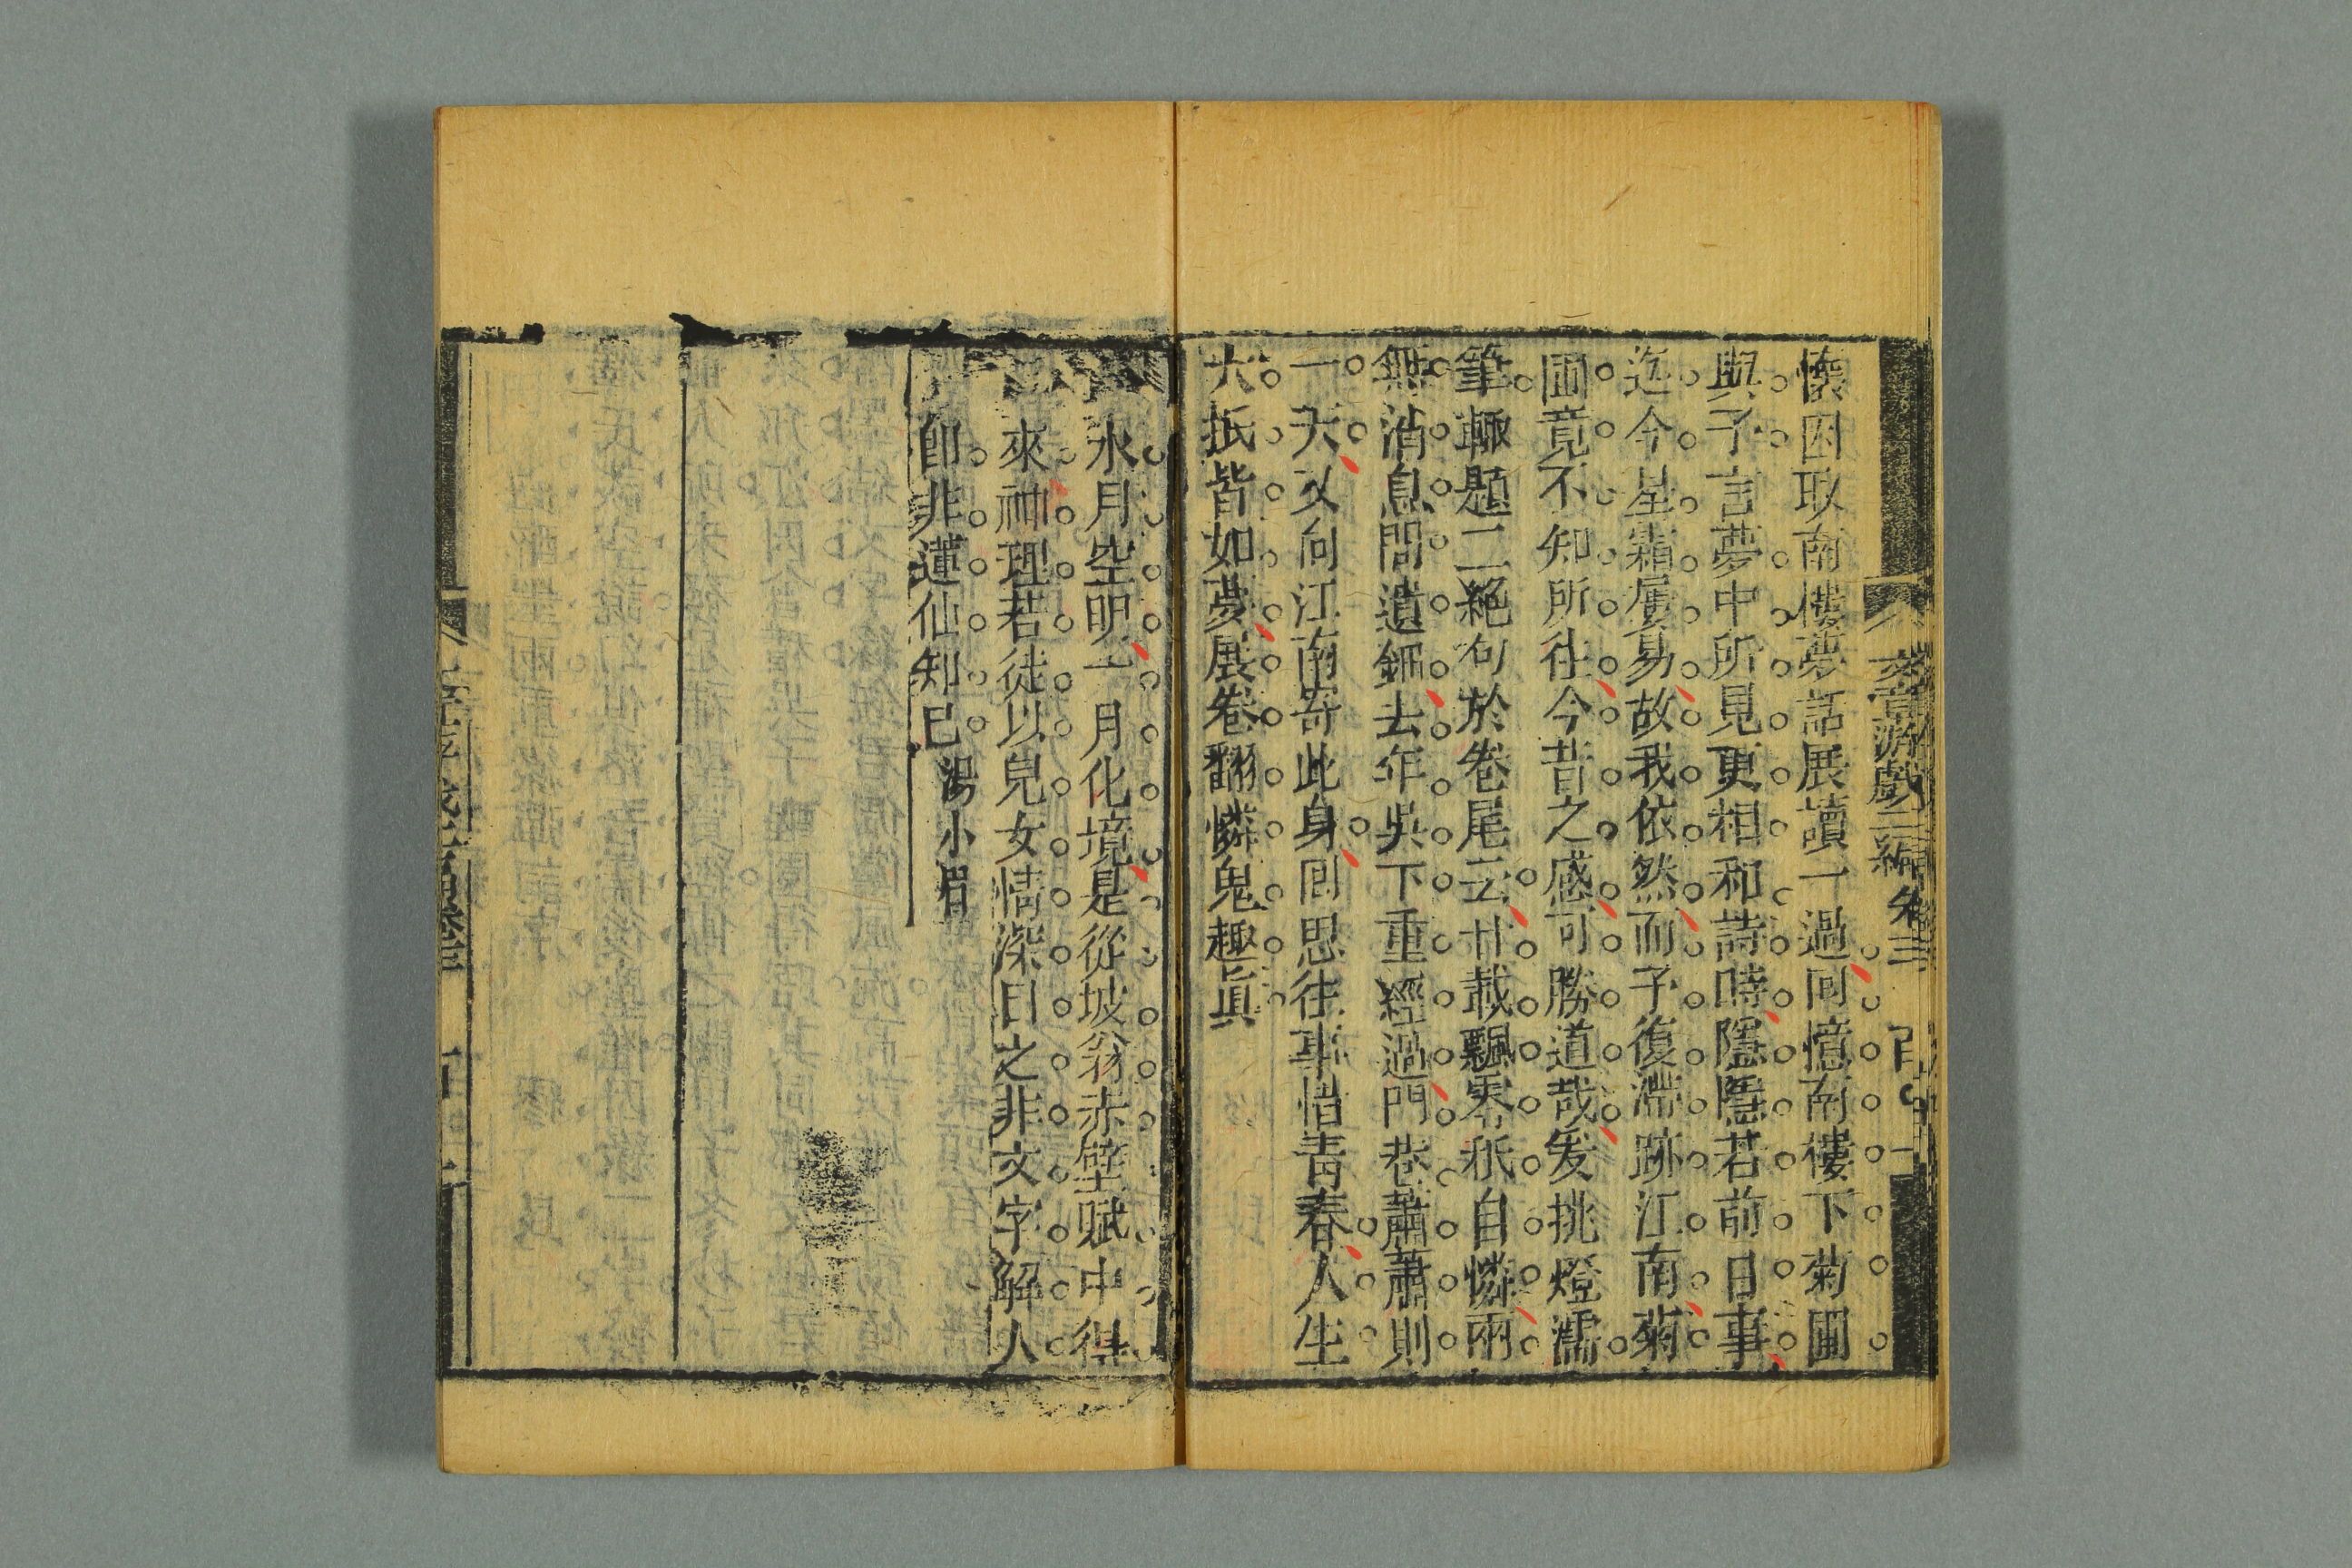 懷因取南樓夢話展讀一過回憶南樓下菊圃
與予言夢中所見更相和詩時隱隱若前日事
迄今星霜屢易故我依然而予復滯跡江南菊
圃竟不知所往今昔之感可勝道哉爰挑燈濡
筆輙題二絕句於卷尾云廿載飄零秖自憐兩
無消息問遺鈿去年吳下重經過門巷蕭蕭則
一大又向江南寄此身回思往事惜青春人生
大抵皆如夢展卷翻憐鬼趣眞
水月空明一月化境是從坡翁赤壁賦中得
來神理若徒以兒女情深目之非文字解人
卽非蓮仙知己 湯小眉
游戲三編 卷三